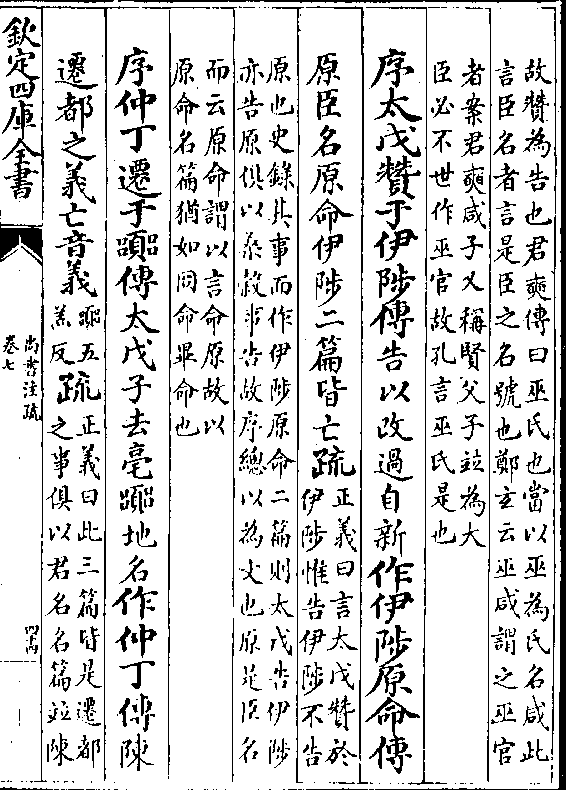 故贊為告也君奭傳曰巫氏也當以巫為氏名咸此
言臣名者言是臣之名號也鄭玄云巫咸謂之巫官
者案君奭咸子又稱賢父子並為大
臣必不世作巫官故孔言巫氏是也
序太戊贊于伊陟傳告以改過自新作伊陟原命傳
原臣名原命伊陟二篇皆亡疏
正義曰言太戊贊於
伊陟惟告伊陟不告
原也史錄其事而作伊陟原命二篇則太戊告伊陟
亦告原俱以桑榖事告故序總以為文也原是臣名
而云原命謂以言命原故以
原命名篇猶如冏命畢命也
序仲丁遷于囂傳太戊子去亳囂地名作仲丁傳陳
遷都之義亡音義
囂五
羔反
疏
正義曰此三篇皆是遷都
之事俱以君名名篇並陳
欽定四庫全書
尚書注疏
卷七